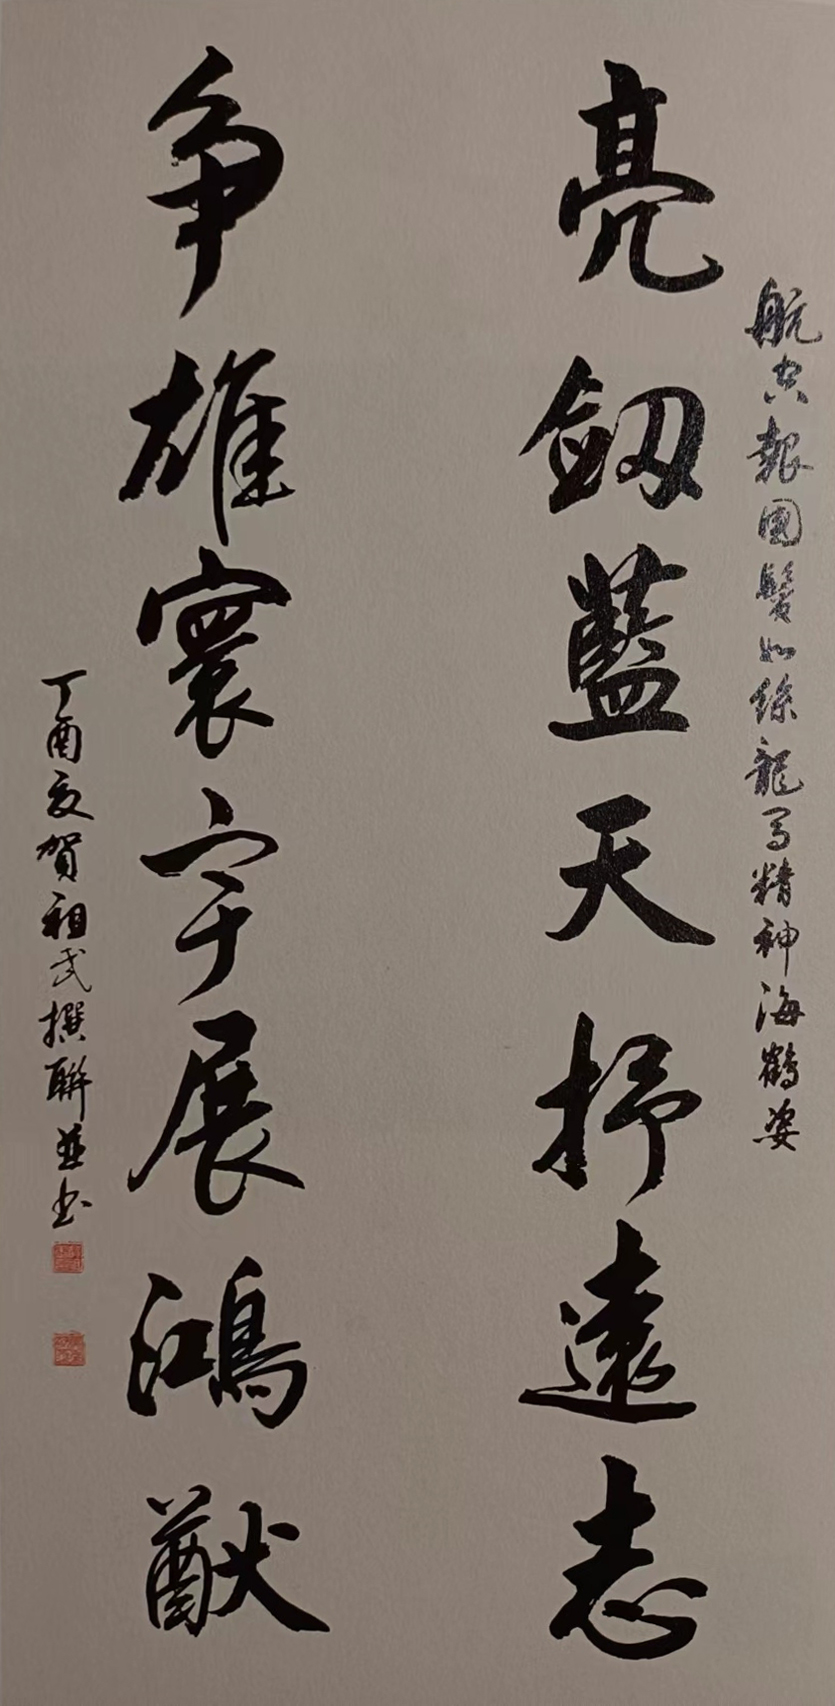 航空報國鬢如絲龍馬精神海鶴姿
亮劔藍天抒遠志
争雄寰宇展鴻猷
丁酉夏賀祖武撰聯並书